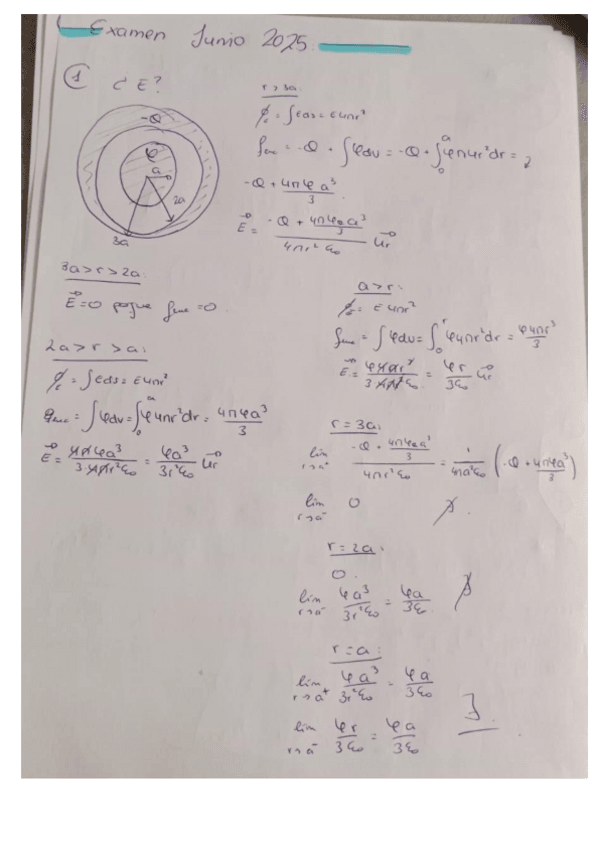 Examen Junio 2025.
① ¿ E?
-Q
φ
a
2a
3a
r > 3a:
ϕ_e = ∫eds = E4πr²
q_enc = -Q + ∫φdv = -Q + ∫₀ᵃ φπ4r²dr =
-Q + 4πφa³/3
E⃗ = (-Q + 4πφa³/3)/(4πr²ε₀) u⃗r
3a>r>2a:
E⃗=0 porque q_enc=0.
2a>r>a:
ϕ_e = ∫eds = E4πr²
q_enc = ∫φdv = ∫₀ᵃ φ4πr²dr = 4πφa³/3
E⃗ = 4πφa³/(3·4πr²ε₀) = φa³/(3r²ε₀) u⃗r
a>r:
ϕ_e = E4πr²
q_enc = ∫φdv = ∫₀ʳ φ4πr²dr = φ4πr³/3
E⃗ = φ4πr³/(3·4πr²ε₀) = φr/(3ε₀) u⃗r
r=3a:
lim r→a⁺ (-Q + 4πφa³/3)/(4πr²ε₀) = 1/(4πa²ε₀) (-Q + 4πφa³/3)
lim r→a⁻ 0 ∄.
r=2a:
0.
lim r→a⁻ φa³/(3r²ε₀) = φa/(3ε₀) ∄
r=a:
lim r→a⁺ φa³/(3r²ε₀) = φa/(3ε₀)
∃.
lim r→a⁻ φr/(3ε₀) = φa/(3ε₀)